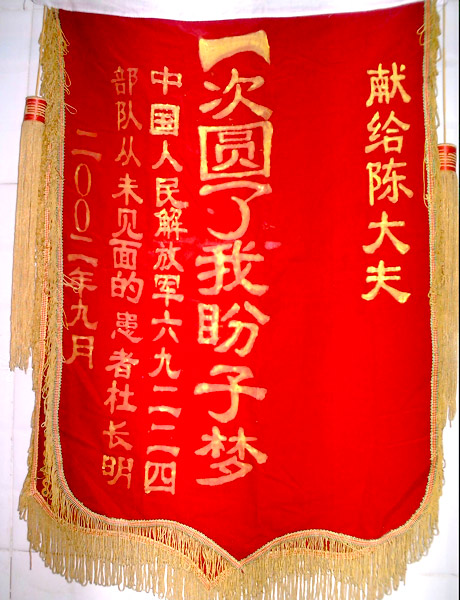 献给陈大夫
一次圆了我盼子梦
中国人民解放军六九二二四
部队从未见面的患者杜长明
二00二年九月